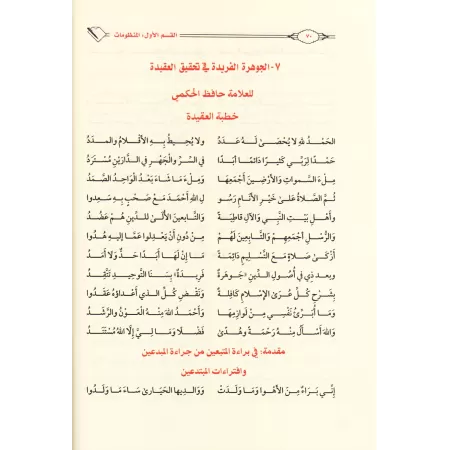 القسم الأول: المنظومات
٧٠
٧- الجوهرة الفريدة في تحقيق العقيدة
للعلامة حافظ الحكمي
خطبة العقيدة
الحَمْدُ للهِ لَا يُحْصَىٰ لَهُ عَدَدُ وَلَا يُحِيطُ بِهِ الأَقْلَامُ وَالمَدَدُ
حَمْدًا لِرَبِّي كَثِيرًا دَائِمًا أَبَدًا فِي السِّرِّ وَالجَهْرِ فِي الدَّارَيْنِ مُسْتَرَدُ
مِلْءَ السَّمَوَاتِ وَالأَرَضِينَ أَجْمَعِهَا وَمِلْءَ مَا شَاءَ بَعْدُ الوَاحِدُ الصَّمَدُ
ثُمَّ الصَّلَاةُ عَلَىٰ خَيْرِ الأَنَامِ رَسُو لِ اللهِ أَحْمَدَ مَعْ صَحْبٍ بِهِ سَعِدُوا
وَأَهْلِ بَيْتِ النَّبِي وَالآلِ قَاطِبَةً وَالتَّابِعِينَ الأُلَىٰ لِلدِّينِ هُمْ عَضُدُ
وَالرُّسْلِ أَجْمَعِهِمْ وَالتَّابِعِينَ لَهُمْ مِنْ دُونِ أَنْ يَعْدِلُوا عَمَّا إِلَيْهِ هُدُوا
أَزْكَىٰ صَلَاةٍ مَعَ التَّسْلِيمِ دَائِمَةً مَا إِنْ لَهَا أَبَدًا حَدٌّ وَلَا أَمَدُ
وبعد ذي في أُصُولِ الدِّينِ «جَوْهَرَةٌ فَرِيدَةٌ» بِسَنَا التَّوْحِيدِ تَتَّقِدُ
بِشَرْحِ كُلِّ عُرَىٰ الإِسْلَامِ كَافِلَةٌ وَنَقْضِ كُلِّ الذي أَعْدَاؤُهُ عَقَدُوا
وَمَا أُبَرِّئُ نَفْسِي مِنْ لَوَازِمِهَا وَأَحْمَدُ اللهَ مِنْهُ العَوْنُ وَالرَّشَدُ
وَاللهَ أَسْأَلُ مِنْهُ رَحْمَةً وَهُدًىٰ فَضْلًا وَمَا لِيَ إِلَّا اللهُ مُسْتَنَدُ
مقدمة: في براءة المتبعين من جراءة المبدعين
وافتراءات المبتدعين
إِنِّي بَرَاءٌ مِنَ الأَهْوَا وَمَا وَلَدَتْ وَوَالِدِيهَا الحَيَارَىٰ سَاءَ مَا وَلَدُوا